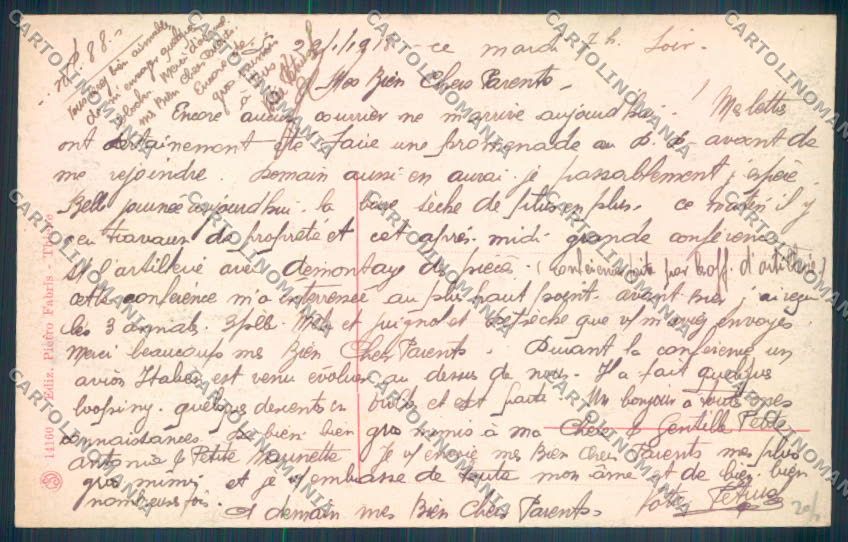 N° 88.
Vous êtes bien aimables
de m'envoyer quelques
Merci d'avance
mes Bien Chers Parents
Encore de
gros mimis
à tous
22/1/1918 ce mardi 7h. Soir.
Mes Bien Chers Parents.
Encore aucun courrier ne m'arrive aujourd'hui. Mes lettres
ont certainement été faire une promenade au avant de
me rejoindre. Demain aussi en aurai-je passablement j'espère.
Belle journée aujourd'hui. la boue sèche de plus en plus. ce matin il y
eu travaux de propreté et cet après-midi grande conférence
st l'artillerie avec démontage de pièces. (conférence faite par 1 soff. d'artillerie)
cette conférence m'a intéressée au plus haut point. avant hier j'ai reçu
les 3 annals. et guignol et que v/ m'avez envoyés
Merci beaucoup mes Bien Chers Parents. Durant la conférence un
avion Italien est venu évoluer au dessus de nous. Il a fait quelques
looping. quelques descentes en vrilles et est parti. Un bonjour à toutes mes
connaissances. De bien bien gros mimis à ma Chère & Gentille Petite
Antonia & Petite Je v/ envoie mes Bien Chers Parents mes plus
gros mimis et je v/ embrasse de toute mon âme et de bien bien
nombreuses fois. A demain mes Bien Chers Parents. Votre
14160 Ediz. Pietro Fabris
CARTOLINOMANIA